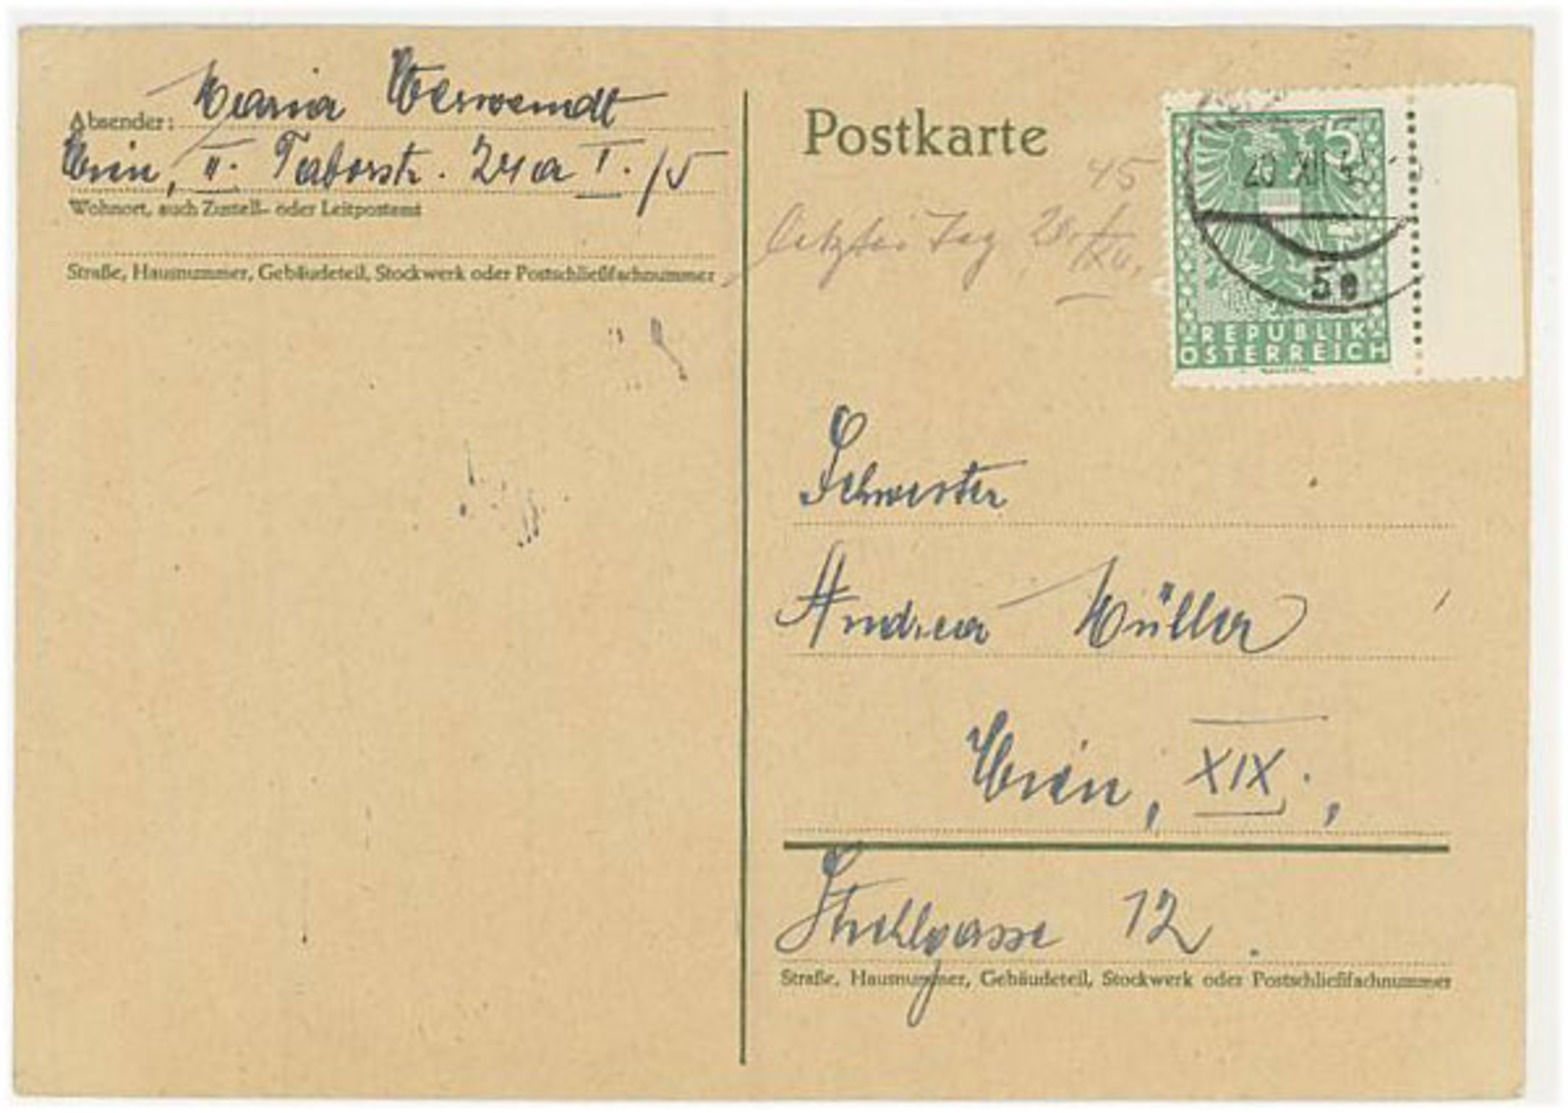 Absender: Maria Verwendt
Wien, II. Taborstr. 24a I./5
Wohnort, auch Zustell- oder Leitpostamt
Straße, Hausnummer, Gebäudeteil, Stockwerk oder Postschließfachnummer
Postkarte
45
letzter Tag 20.
5
20 XII
5e
REPUBLIK
ÖSTERREICH
Schwester
Andrea Müller
Wien, XIX.,
12.
Straße, Hausnummer, Gebäudeteil, Stockwerk oder Postschließfachnummer